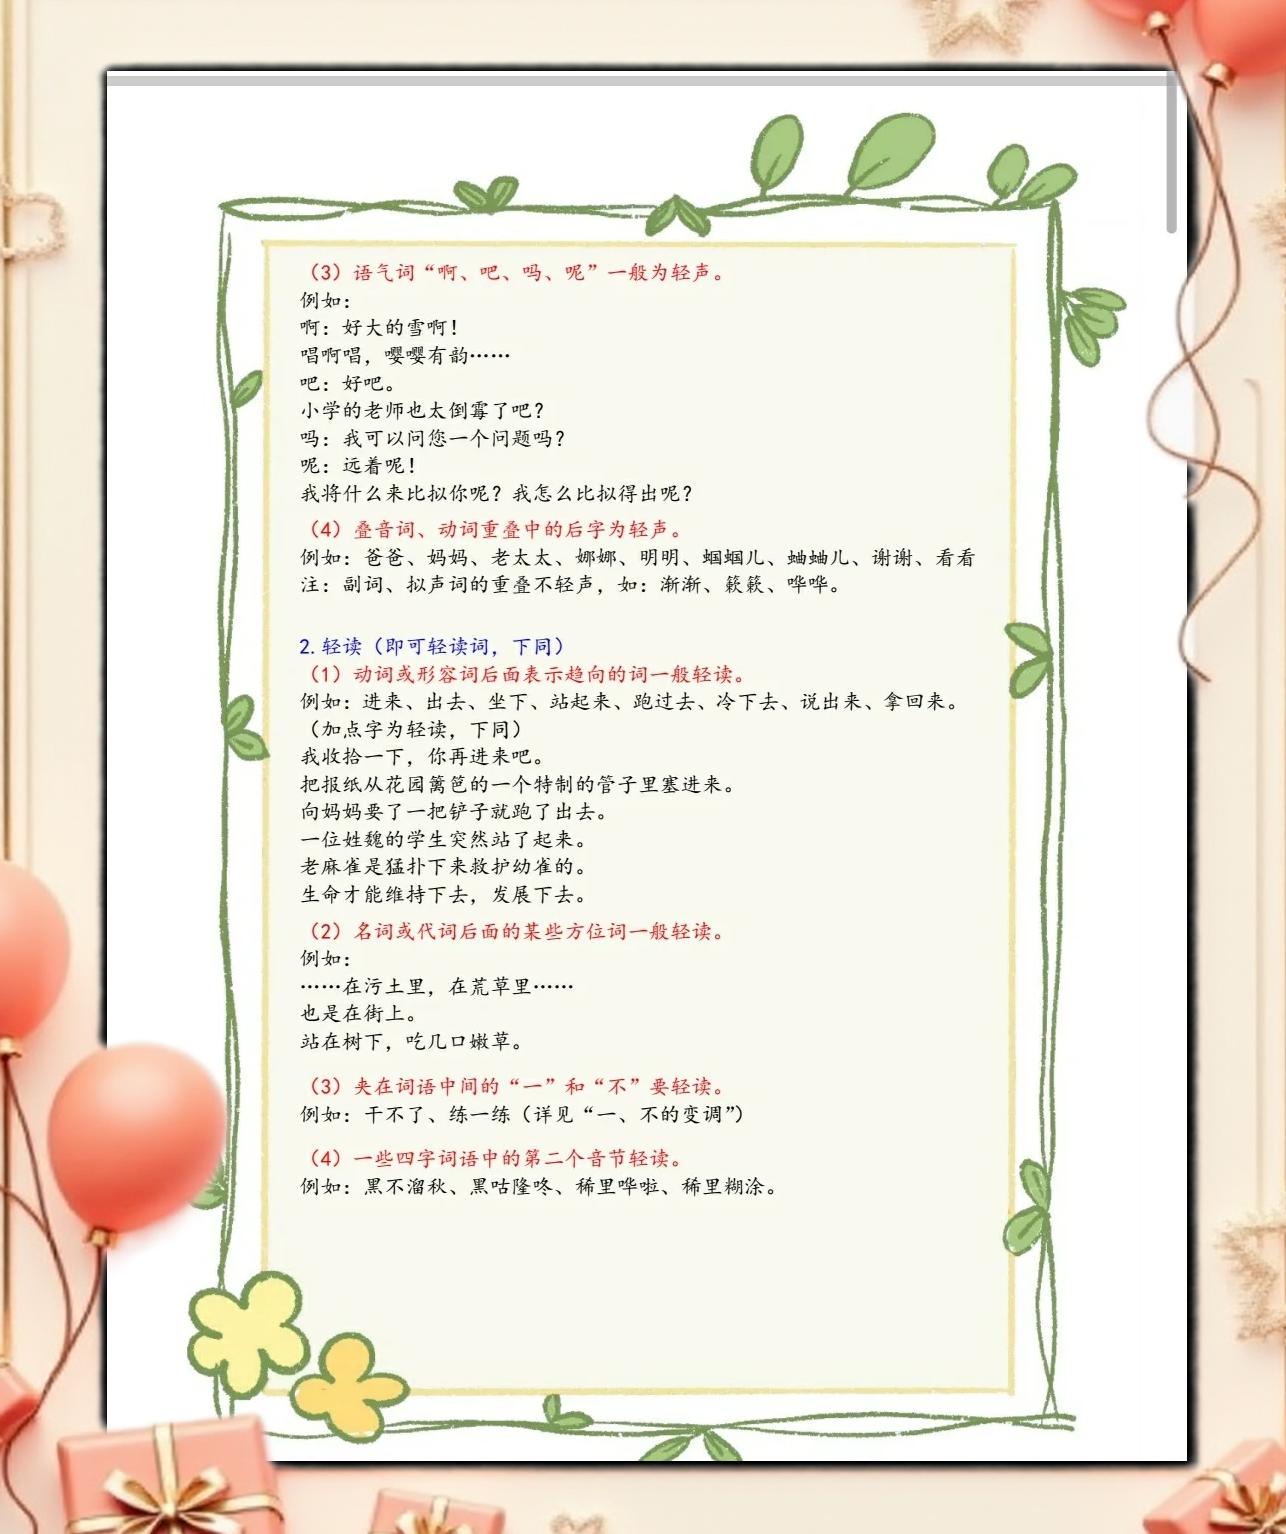 （3）语气词“啊、吧、吗、呢”一般为轻声。
例如：
啊：好大的雪啊！
唱啊唱，嘤嘤有韵……
吧：好吧。
小学的老师也太倒霉了吧？
吗：我可以问您一个问题吗？
呢：远着呢！
我将什么来比拟你呢？我怎么比拟得出呢？
（4）叠音词、动词重叠中的后字为轻声。
例如：爸爸、妈妈、老太太、娜娜、明明、蝈蝈儿、蛐蛐儿、谢谢、看看
注：副词、拟声词的重叠不轻声，如：渐渐、簌簌、哗哗。
2.轻读（即可轻读词，下同）
（1）动词或形容词后面表示趋向的词一般轻读。
例如：进来、出去、坐下、站起来、跑过去、冷下去、说出来、拿回来。
（加点字为轻读，下同）
我收拾一下，你再进来吧。
把报纸从花园篱笆的一个特制的管子里塞进来。
向妈妈要了一把铲子就跑了出去。
一位姓魏的学生突然站了起来。
老麻雀是猛扑下来救护幼雀的。
生命才能维持下去，发展下去。
（2）名词或代词后面的某些方位词一般轻读。
例如：
……在污土里，在荒草里……
也是在街上。
站在树下，吃几口嫩草。
（3）夹在词语中间的“一”和“不”要轻读。
例如：干不了、练一练（详见“一、不的变调”）
（4）一些四字词语中的第二个音节轻读。
例如：黑不溜秋、黑咕隆咚、稀里哗啦、稀里糊涂。